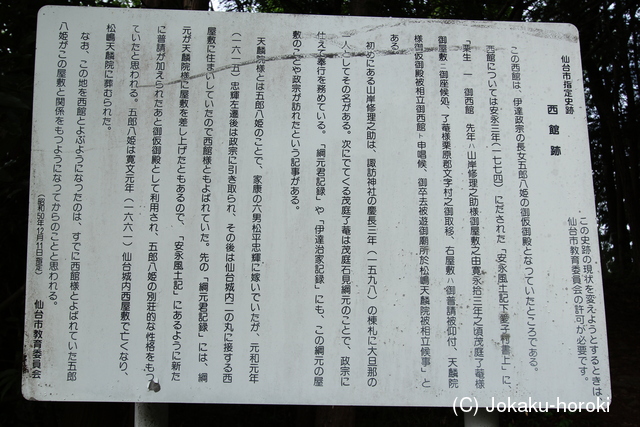 仙台市指定史跡
西館跡
この史跡の現状を変えようとするときは、
仙台市教育委員会の許可が必要です。
この西館は、伊達政宗の長女五郎八姫の仮御殿となつていたところである。
西館については安永三年(一七七四)にだされた「安永風土記下愛子村書上」に、
「栗生 一 御西館 先年ハ山岸修理之助様御屋敷之由寛永拾三年之頃茂庭了庵様
御屋敷ニ御座候処、了庵様栗原郡文字村之御取移、右屋敷ハ御普請被仰付、天麟院
様御仮御殿被相立御西館ト申唱候、御卒去被遊御廟所於松嶋天麟院被相立候事」と
ある
初めにある山岸修理之助は、諏訪神社の慶長三年(一五九八)の棟札に大旦那の
人としてその名がある。次にでてくる茂庭了庵は茂庭石見綱元のことで、政宗に
仕えて奉行を務めている。「綱元君記録」や「伊達治家記録」にも、この綱元の屋
敷のことや政宗が訪れたという記事がある。
天麟院様とは五郎八姫のことで、家康の六男松平忠輝に嫁いでいたが、元和元年
(一六一五)忠輝左遷後は政宗に引き取られ、その後は仙台城内二の丸に接する西
屋敷に住まいしていたので西館様ともよばれていた。先の「綱元君記録」には、綱
元が天麟院様に屋敷を差し上げたともあるので、「安永風土記」にあるように新た
に普請が加えられたあと御仮御殿として利用され、五郎八姫の別荘的な性格をもつ
ていたと思われる。五郎八姫は寛文元年(一六六一)仙台城内西屋敷で亡くなり、
松嶋天麟院に葬むられた。
なお、この地を西館とよぶようになつたのは、すでに西館様とよばれていた五郎
八姫がこの屋敷と関係をもつようになつてからのことと思われる。
(昭和50年12月11日指定) 仙台市教育委員会
(C) Jokaku-horoki